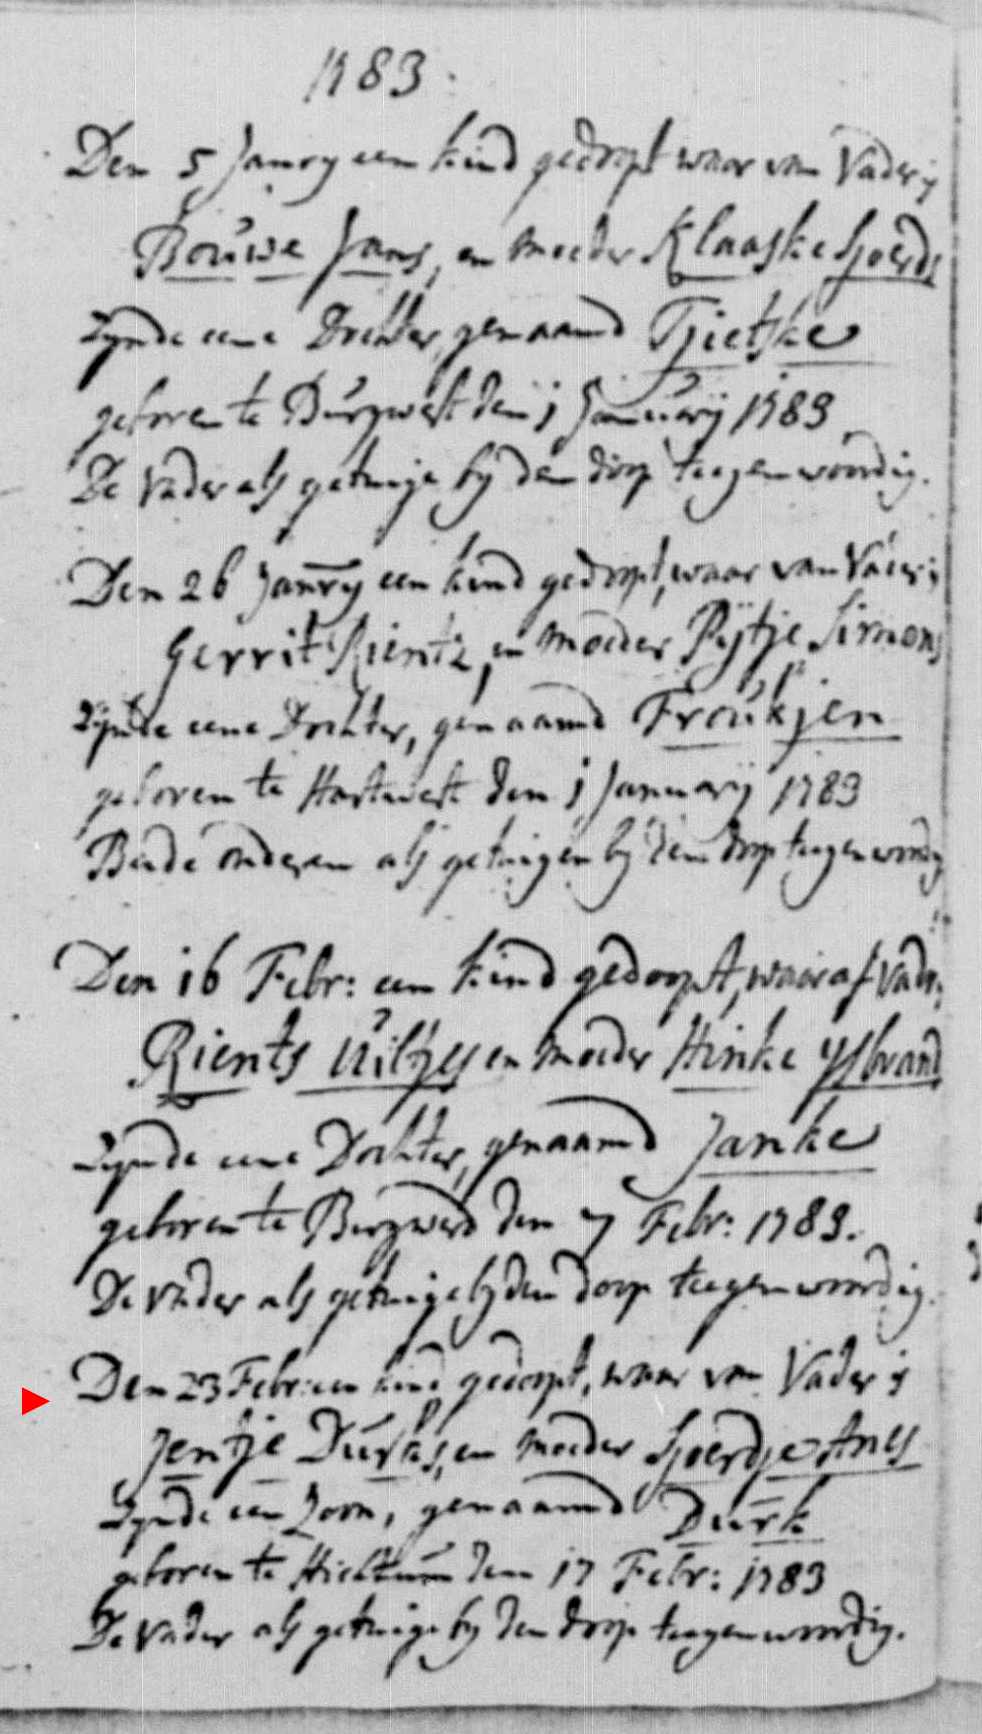 1783.
Den 5 Janry een kind gedoopt waar van Vader is
Bouwe Jans, en moeder Klaaske Sjoerds
Zynde eene Dochter, genaamd Tjietske
geboren te Burgwert den 1 January 1783
De Vader als getuige by den doop teegenwoordig.
Den 26 Janry een kind gedoopt, waar van Vader is
Gerrit Rientz, en moeder Pytje Simons
Zynde eene Dochter, genaamd Froukjen
geboren te den 1 January 1783
Beide onderen als getuigen by den doop teegenwordig
Den 16 Febr: een kind gedoopt, waar af Vader
Rients Uiltzes en moeder Hinke Ysbrand
Zynde eene Dochter, genaamd Janke
geboren te Burgwerd den 7 Febr: 1783.
De Vader als getuige by den doop teegenwoordig.
Den 23 Febr: een kind gedoopt, waar van Vader is
Jentje Durks, en moeder Sjoerdje Anes
Zynde een Zoon, genaamd Durk
geboren te Hichtum den 17 Febr: 1783
De Vader als getuige by den doop teegenwoordig.